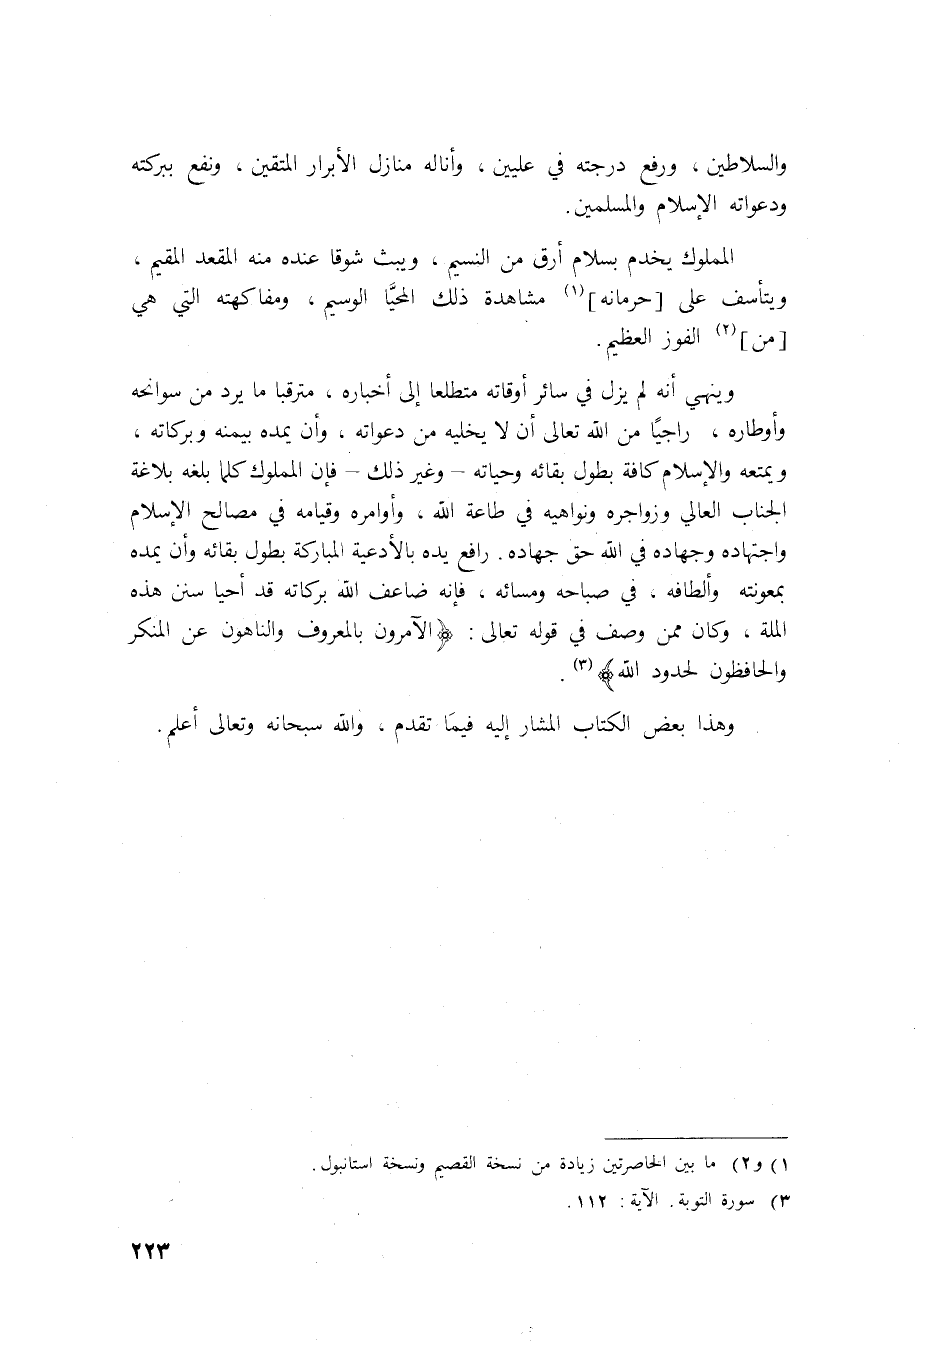 والسلاطين ، ورفع درجته في عليين ، وأناله منازل الأبرار المتقين ، ونفع ببركته
ودعواته الإسلام والمسلمين .
المملوك يخدم بسلام أرق من النسيم ، ويبث شوقا عنده منه المقعد المقيم ،
ويتأسف على [حرمانه](١) مشاهدة ذلك المحيَّا الوسيم ، ومفاكهته التي هي
[من](٢) الفوز العظيم .
وينهي أنه لم يزل في سائر أوقاته متطلعا إلى أخباره ، مترقبا ما يرد من سوانحه
وأوطاره ، راجيًا من الله تعالى أن لا يخليه من دعواته ، وأن يمده بيمنه وبركاته ،
ويمتعه والإسلام كافة بطول بقائه وحياته – وغير ذلك – فإن المملوك كلما بلغه بلاغة
الجناب العالي وزواجره ونواهيه في طاعة الله ، وأوامره وقيامه في مصالح الإسلام
واجتهاده وجهاده في الله حق جهاده . رافع يده بالأدعية المباركة بطول بقائه وأن يمده
بمعونته وألطافه ، في صباحه ومسائه ، فإنه ضاعف الله بركاته قد أحيا سنن هذه
الملة ، وكان ممن وصف في قوله تعالى : ﴿الآمرون بالمعروف والناهون عن المنكر
والحافظون لحدود الله﴾(٣) .
وهذا بعض الكتاب المشار إليه فيمَا تقدم ، والله سبحانه وتعالى أعلم .
١) و٢) ما بين الحاصرتين زيادة من نسخة القصيم ونسخة استانبول .
٣) سورة التوبة . الآية : ١١٢ .
٢٢٣